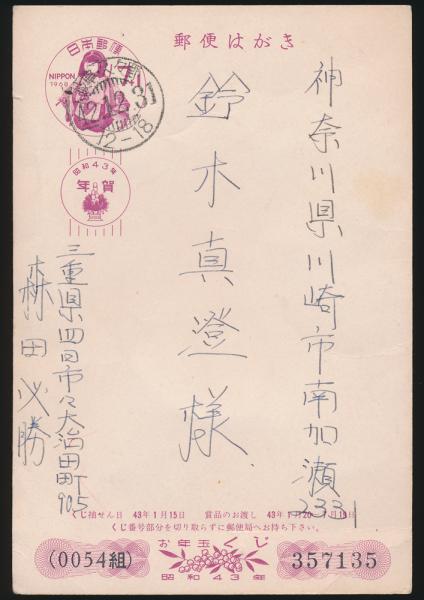 郵便はがき
日本郵便
NIPPON
1968
42.12.31
12-18
昭和43年
年賀
神奈川県川崎市南加瀬
2331
鈴木真澄様
三重県四日市々大治田町
905
森田必勝
くじ抽せん日 43年1月15日 賞品のお渡し 43年1月20日
くじ番号部分を切り取らずに郵便局へお持ち下さい。
(0054組)
お年玉くじ
昭和43年
357135